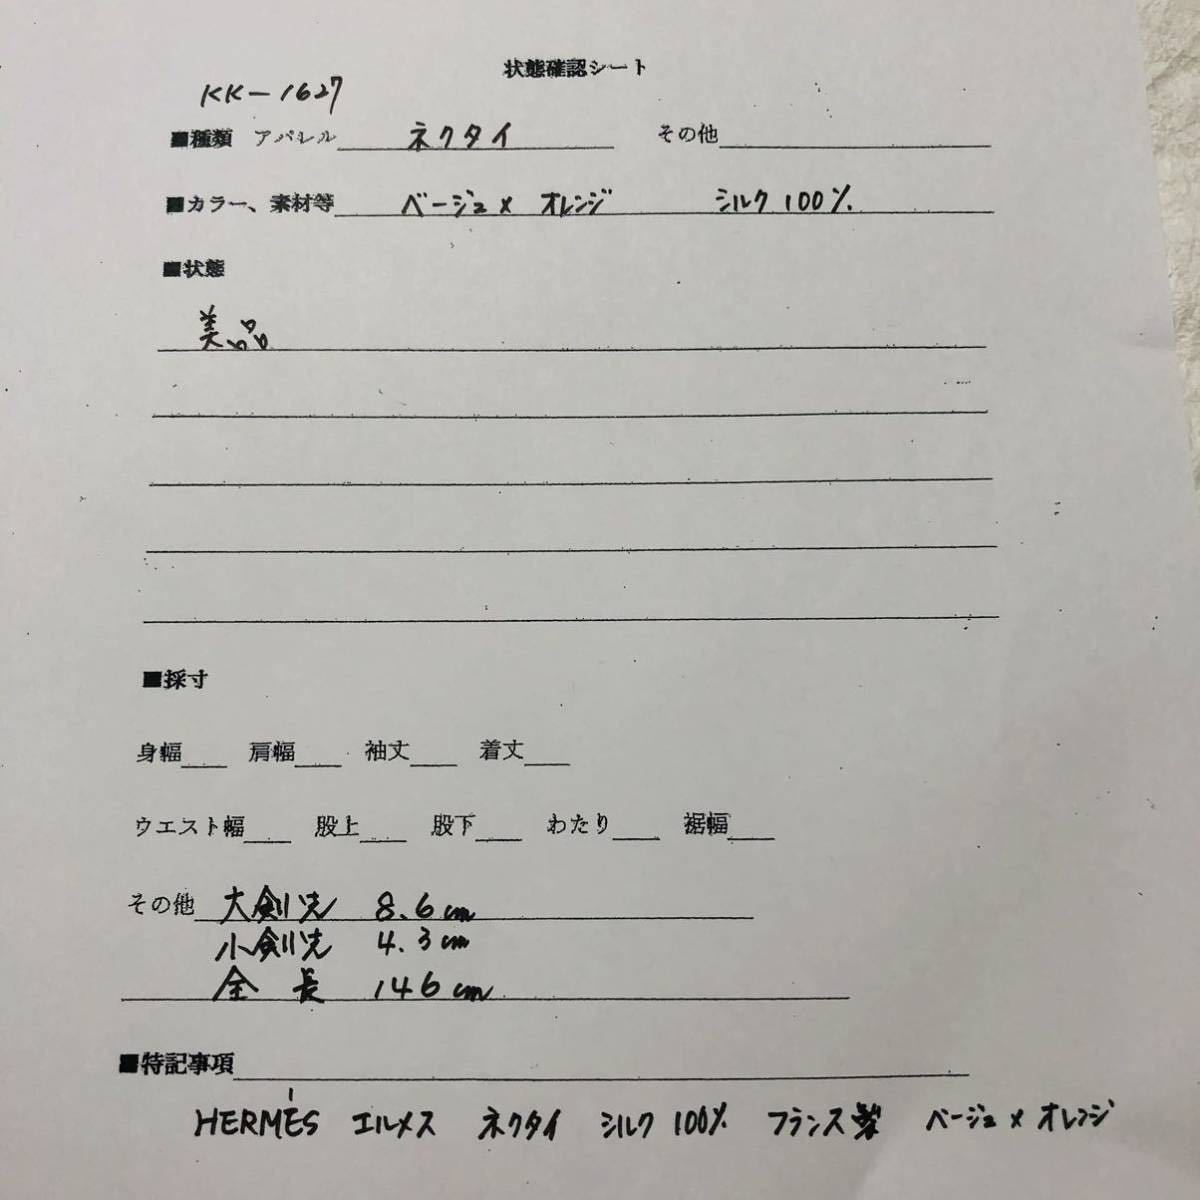 状態確認シート
KK-1627
■種類 アパレル ネクタイ その他
■カラー、素材等 ベージュ× オレンジ シルク 100%
■状態
美品
■採寸
身幅 肩幅 袖丈 着丈
ウエスト幅 股上 股下 わたり 裾幅
その他 大剣先 8.6cm
小剣先 4.3cm
全長 146cm
■特記事項
HERMÉS エルメス ネクタイ シルク 100% フランス製 ベージュ×オレンジ